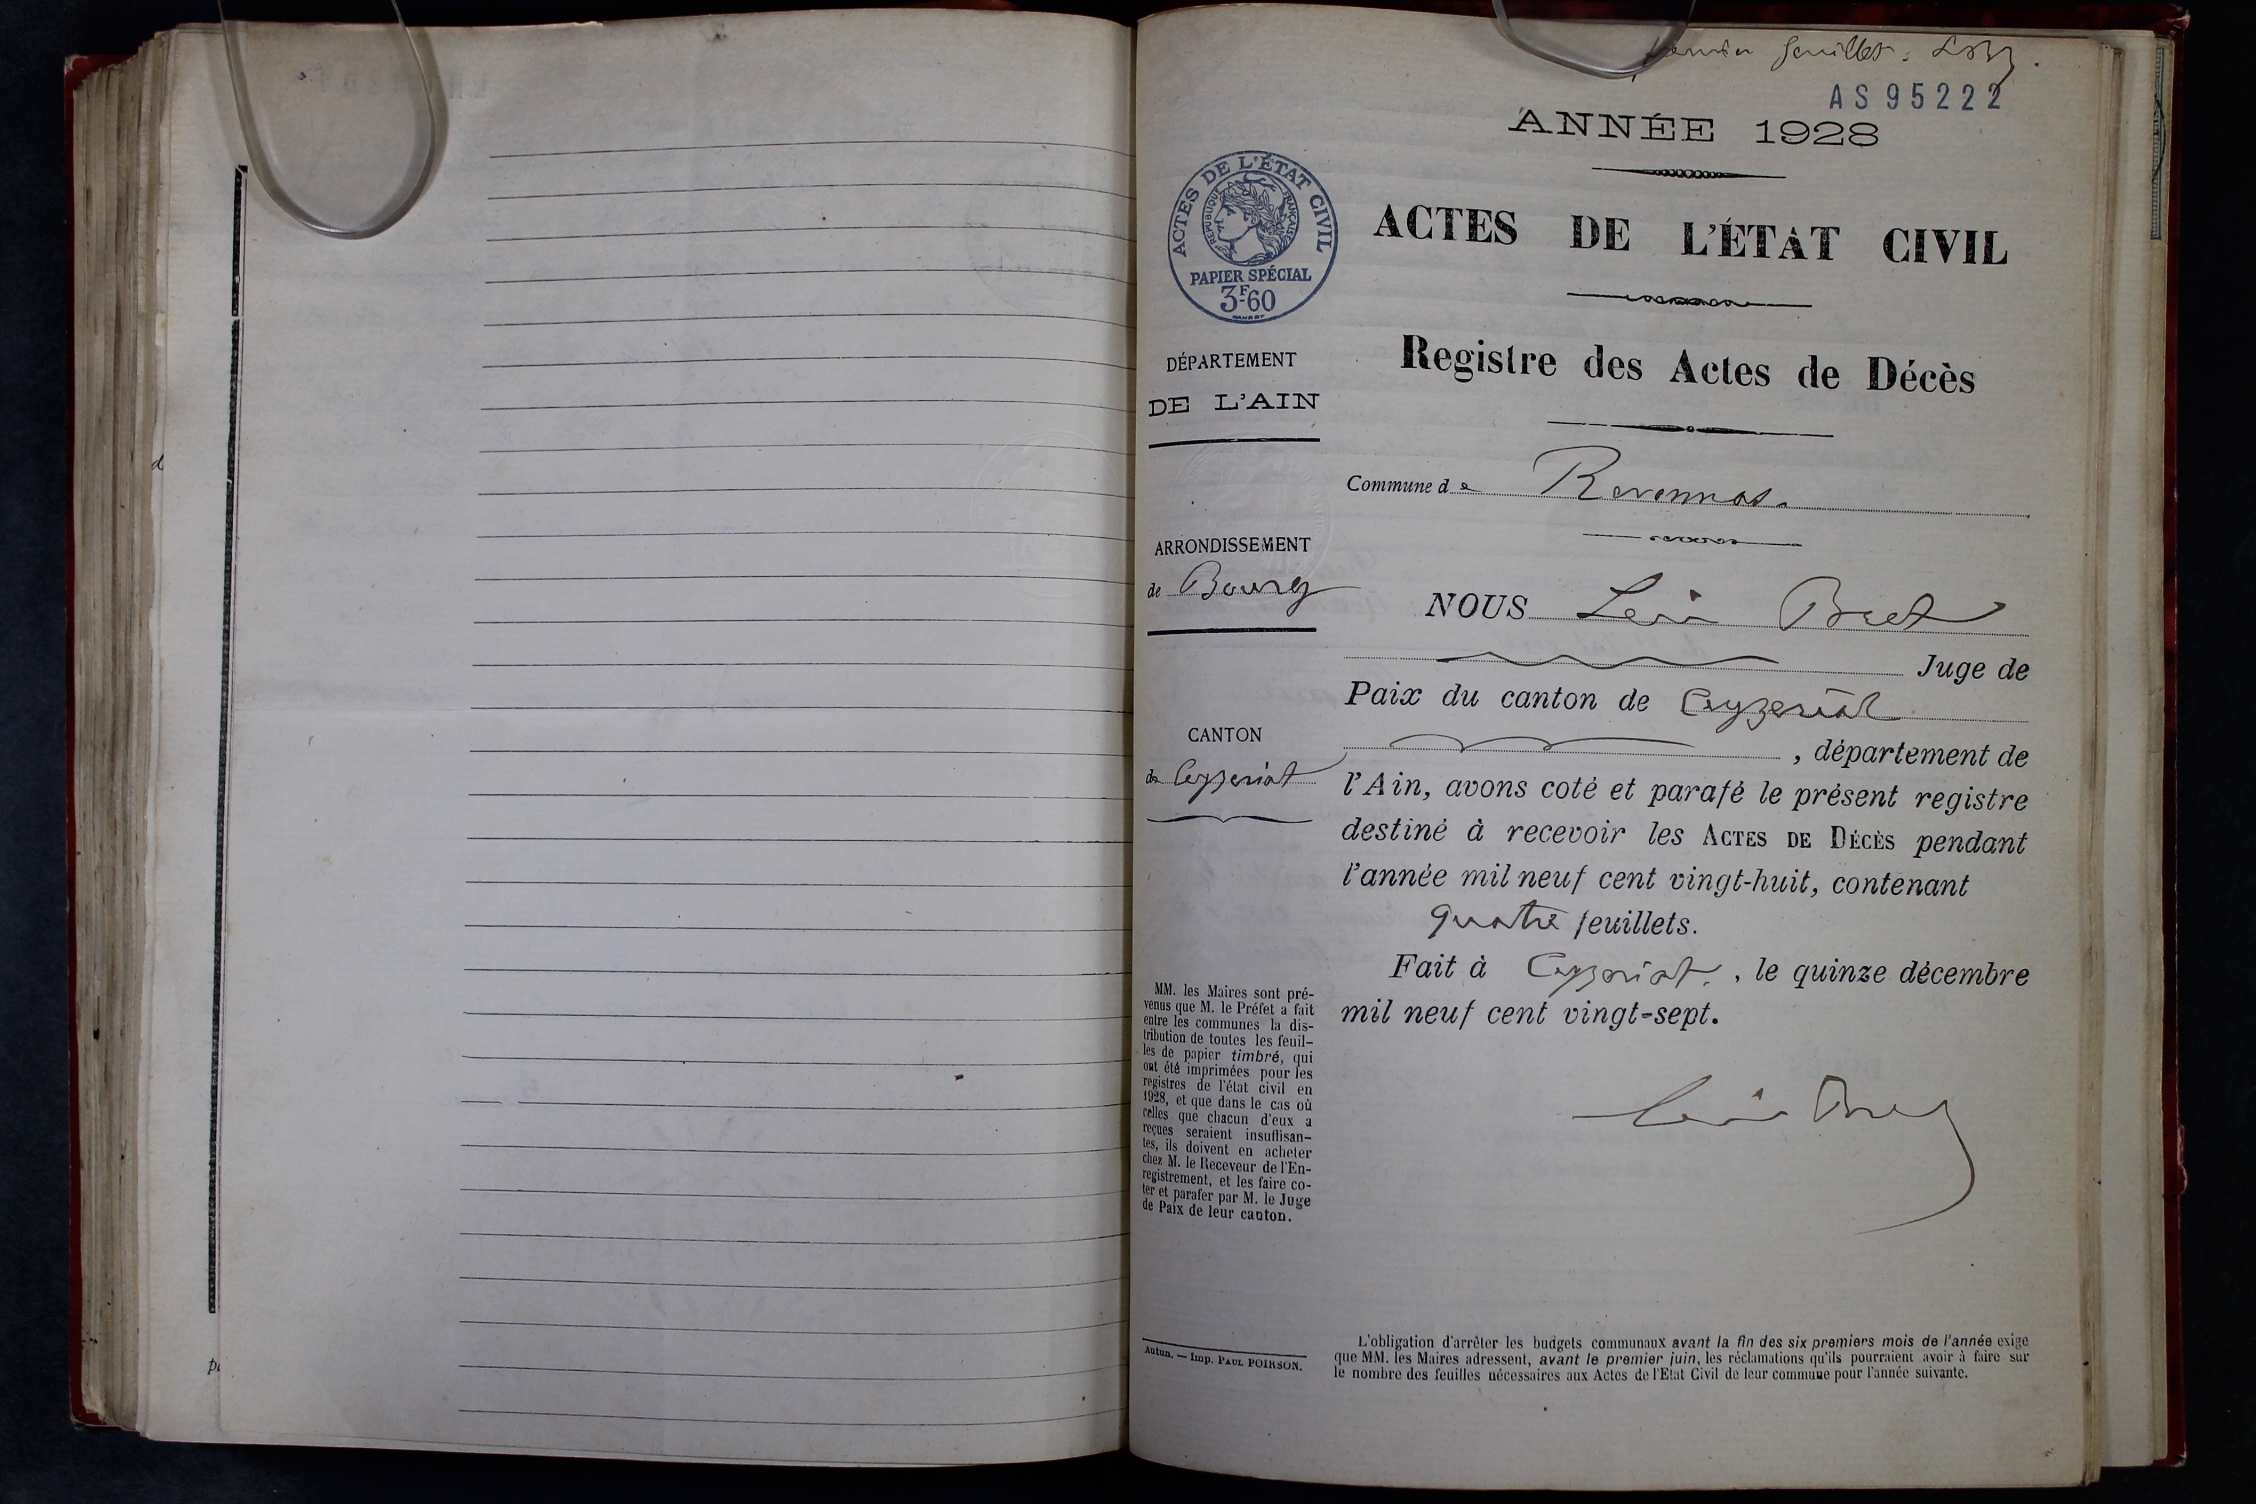 d
p
feuillet.
AS95222
ANNÉE 1928
ACTES DE L'ÉTAT CIVIL
RÉPUBLIQUE FRANÇAISE
PAPIER SPÉCIAL
3F60
ACTES DE L'ÉTAT CIVIL
Registre des Actes de Décès
DÉPARTEMENT
DE L'AIN
Commune de Revonnas.
ARRONDISSEMENT
de Bourg
NOUS Léon Bret
Juge de
Paix du canton de Ceyzeriat
, département de
CANTON
de Ceyzeriat
l'Ain, avons coté et parafé le présent registre
destiné à recevoir les ACTES DE DÉCÈS pendant
l'année mil neuf cent vingt-huit, contenant
quatre feuillets.
Fait à Ceyzeriat, le quinze décembre
mil neuf cent vingt-sept.
MM. les Maires sont pré-
venus que M. le Préfet a fait
entre les communes la dis-
tribution de toutes les feuil-
les de papier timbré, qui
ont été imprimées pour les
registres de l'état civil en
1928, et que dans le cas où
celles que chacun d'eux a
reçues seraient insuffisan-
tes, ils doivent en acheter
chez M. le Receveur de l'En-
registrement, et les faire co-
ter et parafer par M. le Juge
de Paix de leur canton.
Léon Bret
Autun. — Imp. PAUL POIRSON.
L'obligation d'arrêter les budgets communaux avant la fin des six premiers mois de l'année exige
que MM. les Maires adressent, avant le premier juin, les réclamations qu'ils pourraient avoir à faire sur
le nombre des feuilles nécessaires aux Actes de l'Etat Civil de leur commune pour l'année suivante.